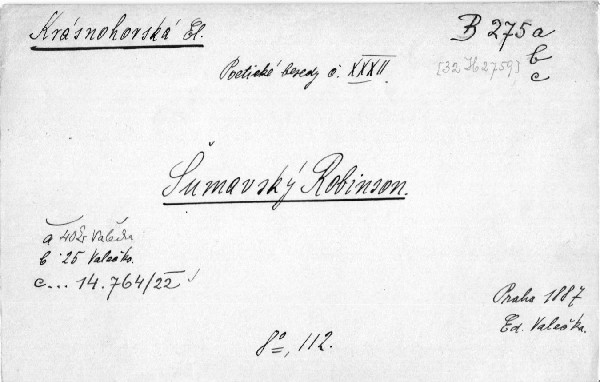 Krásnohorská El.
B 275a
b
c
[32 H 2759]
Poetické besedy č. XXXII
Šumavský Robinson.
a 40 Valečka
b 25 Valečka.
c... 14.764/22
Praha 1887
Ed. Valečka.
8°, 112.